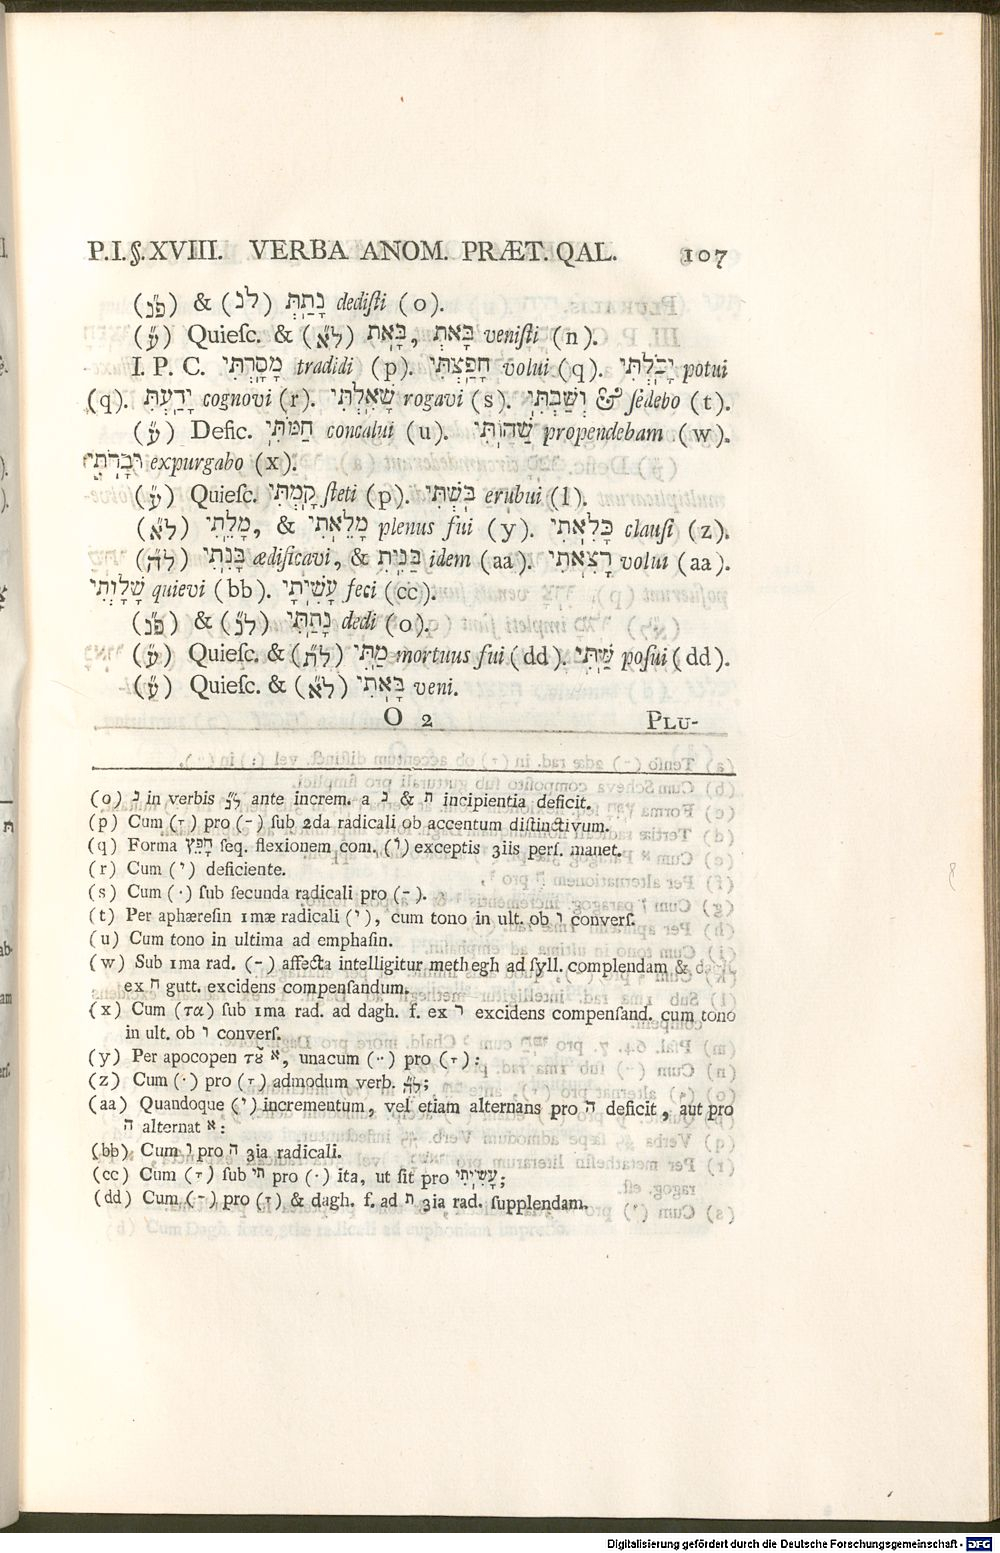 P.I.§.XVIII. VERBA ANOM. PRÆT. QAL. 107
(פ״נ) & (ל״נ) נָתַתְּ dediſti (o).
(ע״ו) Quieſc. & (ל״א) בָּאת, בָּאת veniſti (n).
I. P. C. מָסָרְתִּי tradidi (p). חָפַצְתִּי volui (q). יָכֹלְתִּי potui
(q). יָדַעְתִּי cognovi (r). שָׁאִלְתִּי rogavi (s). וְשַׁבְתִּי & ſedebo (t).
Defic. חַמֹּתִי concalui (u). שַׁחוֹתִי propendebam (w).
וּבָרֹתִי expurgabo (x).
Quieſc. קָמְתִּי ſteti (p). בֹּשְׁתִּי erubui (l).
(ל״א) מָלֵתִי, & מָלֵאתִי plenus fui (y). כָּלִאתִי clauſi (z).
(ל״ה) בָּנִתִי ædificavi, & בָּנִית idem (aa). רָצִאתִי volui (aa).
שָׁלַוְתִּי quievi (bb). עָשִׂיתָי feci (cc).
(פ״נ) & (ל״נ) נָתַתִּי dedi (o).
(ע״ו) Quieſc. & (ל״ת) מַתִּי mortuus fui (dd). שַׁתִּי poſui (dd).
(ע״ו) Quieſc. & (ל״א) בָּאתִי veni.
O 2 PLU-
(o) נ in verbis ל״נ ante increm. a נ & ת incipientia deficit.
(p) Cum (ָ) pro (ַ) ſub 2da radicali ob accentum diſtinctivum.
(q) Forma חָפֵץ ſeq. flexionem com. (ו) exceptis 3iis perſ. manet.
(r) Cum (י) deficiente.
(s) Cum (ִ) ſub ſecunda radicali pro (ַ).
(t) Per aphæreſin 1mæ radicali (י), cum tono in ult. ob ו converſ.
(u) Cum tono in ultima ad emphaſin.
(w) Sub 1ma rad. (ַ) affecta intelligitur methegh ad ſyll. complendam & dagh.
ex ח gutt. excidens compenſandum.
(x) Cum (τα) ſub 1ma rad. ad dagh. f. ex ר excidens compenſand. cum tono
in ult. ob ו converſ.
(y) Per apocopen τȣ א, unacum (ֵ) pro (ָ):
(z) Cum (ִ) pro (ָ) admodum verb. ל״ה;
(aa) Quandoque (י) incrementum, vel etiam alternans pro ה deficit, aut pro
ה alternat א:
(bb) Cum ו pro ה 3ia radicali.
(cc) Cum (ָ) ſub תי pro (ִ) ita, ut ſit pro עָשִׂיתִי;
(dd) Cum (ַ) pro (ָ) & dagh. f. ad ת 3ia rad. ſupplendam.
Digitalisierung gefördert durch die Deutsche Forschungsgemeinschaft - DFG